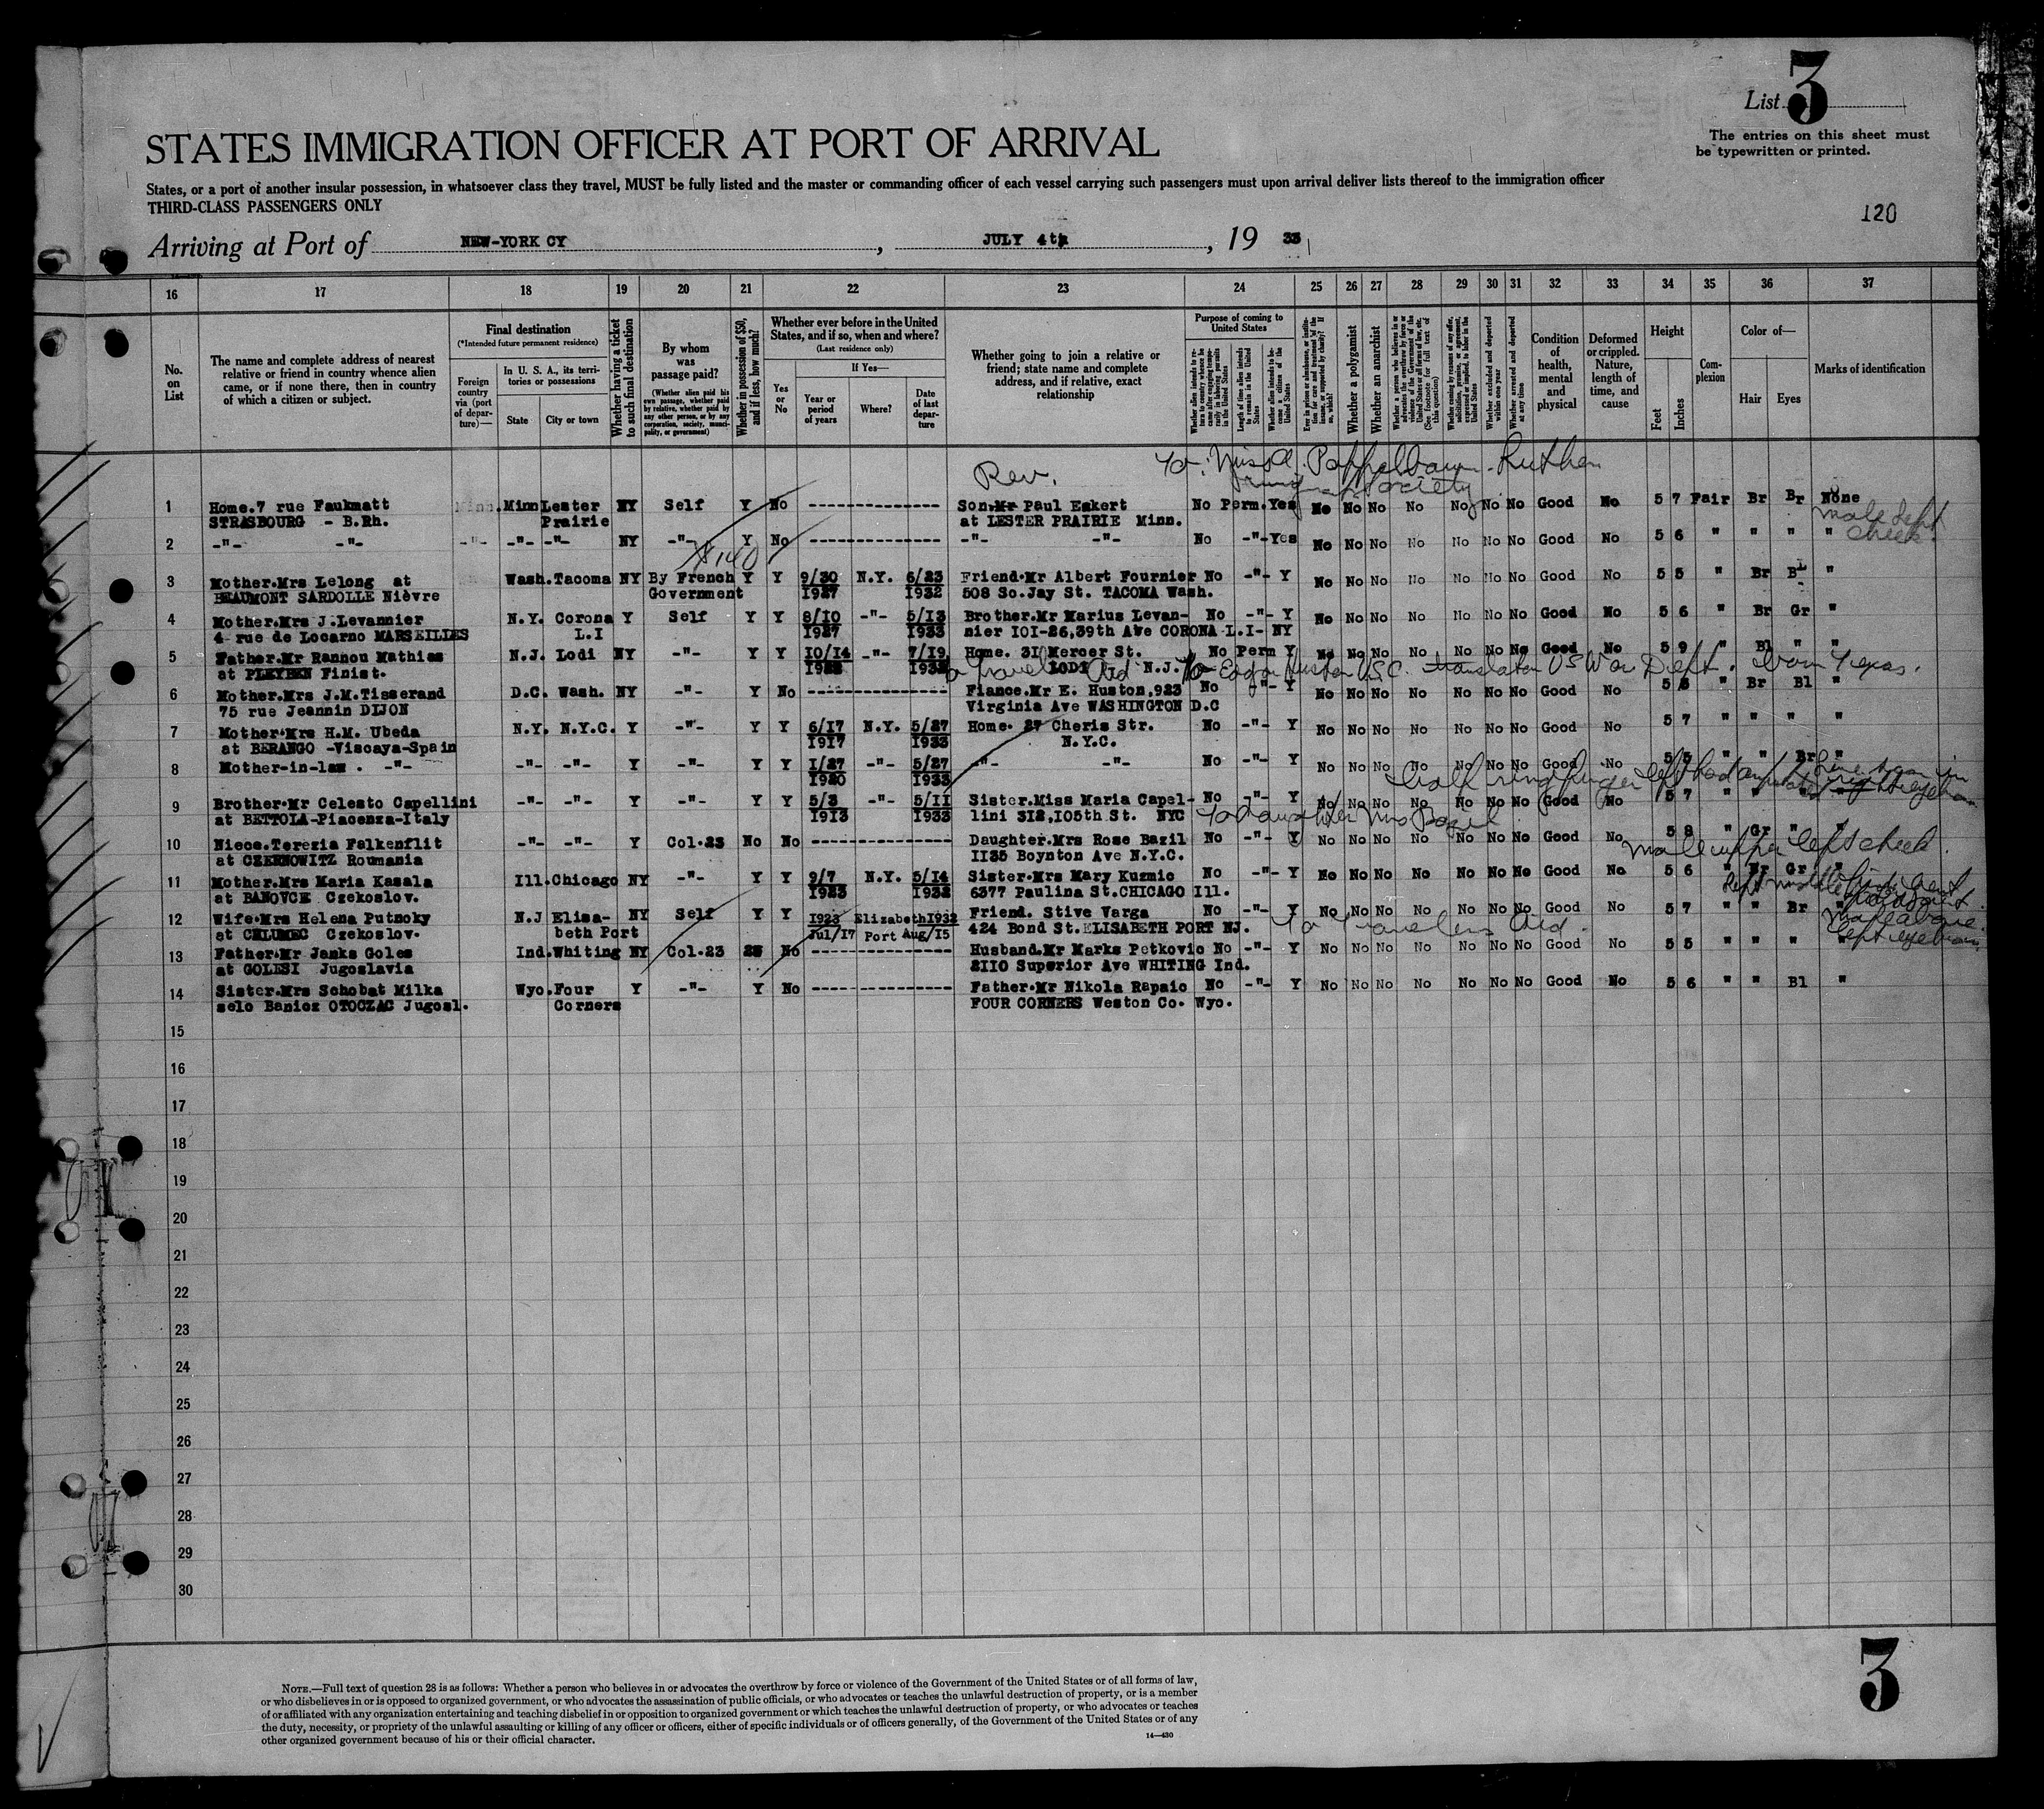 List 3
The entries on this sheet must
be typewritten or printed.
STATES IMMIGRATION OFFICER AT PORT OF ARRIVAL
States, or a port of another insular possession, in whatsoever class they travel, MUST be fully listed and the master or commanding officer of each vessel carrying such passengers must upon arrival deliver lists thereof to the immigration officer
THIRD-CLASS PASSENGERS ONLY
120
Arriving at Port of NEW-YORK CY, JULY 4th, 19 33
16 17 18 19 20 21 22 23 24 25 26 27 28 29 30 31 32 33 34 35 36 37
No. on List
The name and complete address of nearest relative or friend in country whence alien came, or if none there, then in country of which a citizen or subject.
Final destination
(*Intended future permanent residence)
Foreign country via (port of departure)—
In U. S. A., its territories or possessions
State City or town
Whether having a ticket to such final destination
By whom was passage paid?
(Whether alien paid his own passage, whether paid by relative, whether paid by any other person, or by any corporation, society, municipality, or government)
Whether in possession of $50, and if less, how much?
Whether ever before in the United States, and if so, when and where?
(Last residence only)
Yes or No
If Yes—
Year or period of years
Where?
Date of last departure
Whether going to join a relative or friend; state name and complete address, and if relative, exact relationship
Purpose of coming to United States
Length of time alien intends to remain in the United States
Whether alien intends to become a citizen of the United States
Whether a polygamist
Whether an anarchist
Whether excluded and deported within one year
Whether arrested and deported at any time
Condition of health, mental and physical
Deformed or crippled. Nature, length of time, and cause
Height
Feet Inches
Complexion
Color of—
Hair Eyes
Marks of identification
Rev. To: Miss A. Poppelbaum - Luthern
Immigrant Society
1 Home.7 rue Faukmatt Minn. Minn Lester NY Self Y No -------------- Son.Mr Paul Eskert No Perm. Yes No No No No No No No Good No 5 7 Fair Br Br None
STRASBOURG - B.Rh. Prairie at LESTER PRAIRIE Minn.
mole left
cheek
2 -"- -"- -"- -"- -"- NY -"- Y No -------------- -"- -"- No -"- Yes No No No No No No No Good No 5 6 " " " "
$140
3 Mother.Mrs Lelong at Wash. Tacoma NY By French Y Y 9/30 N.Y. 6/23 Friend.Mr Albert Fournier No -"- Y No No No No No No No Good No 5 5 " Br Bl "
BEAUMONT SARDOLLE Nièvre Government 1927 1932 508 So.Jay St. TACOMA Wash.
4 Mother.Mrs J.Levannier N.Y. Corona Y Self Y Y 8/10 -"- 5/13 Brother.Mr Marius Levan- No -"- Y No No No No No No No Good No 5 6 " Br Gr "
4 rue de Locarno MARSEILLES L.I 1927 1933 nier 101-26,39th Ave CORONA L.I- NY
5 Father.Mr Rannou Mathias N.J. Lodi NY -"- Y Y 10/14 -"- 7/19 Home. 31 Mercer St. No Perm Y No No No No No No No Good No 5 9 " Bl " "
at PLEYBEN Finist. LODI N.J.
To Travelers Aid To Edgar Huston U.S.C. translator U S War Dept. born Texas.
6 Mother.Mrs J.M.Tisserand D.C. Wash. NY -"- Y No -------------- Fiance.Mr E. Huston,923 No -"- Y No No No No No No No Good No 5 5 " Br Bl "
75 rue Jeannin DIJON Virginia Ave WASHINGTON D.C
7 Mother.Mrs H.M. Ubeda N.Y. N.Y.C. Y -"- Y Y 6/17 N.Y. 5/27 Home. 27 Cheris Str. No -"- Y No No No No No No No Good No 5 7 " " " "
at BERANGO -Viscaya-Spain 1917 1933 N.Y.C.
8 Mother-in-law . -"- -"- -"- Y -"- Y Y 1/27 -"- 5/27 -"- -"- No -"- Y No No No No No No No Good No 5 5 " " Br "
1920 1933
half ring finger left hand amputated
9 Brother.Mr Celesto Capellini -"- -"- Y -"- Y Y 5/3 -"- 5/11 Sister.Miss Maria Capel- No -"- Y No No No No No No No Good No 5 7 " " " "
at BETTOLA-Piacenza-Italy 1913 1933 lini 312,105th St. NYC
To daughter Mrs Bazil
10 Niece.Terezia Falkenflit -"- -"- Y Col.23 No No -------------- Daughter.Mrs Rose Bazil No -"- Y No No No No No No No Good No 5 8 " Gr " "
at CZERNOWITZ Roumania 1135 Boynton Ave N.Y.C.
mole upper left cheek.
11 Mother.Mrs Maria Kasala Ill. Chicago NY -"- Y Y 9/7 N.Y. 5/14 Sister.Mrs Mary Kuzmic No -"- Y No No No No No No No Good No 5 6 " Br Gr "
at BANOVCE Czekoslov. 1923 1932 6377 Paulina St.CHICAGO Ill.
12 Wife.Mrs Helena Putnoky N.J Elisa- NY Self Y Y 1923 Elizabeth 1932 Friend. Stive Varga No -"- Y No No No No No No No Good No 5 7 " " Br "
at CHLUMEC Czekoslov. beth Port Jul/17 Port Aug/15 424 Bond St.ELISABETH PORT NJ.
To Travelers Aid.
mole above
left eyebrow.
13 Father.Mr Janks Goles Ind. Whiting NY Col.23 25 No -------------- Husband.Mr Marks Petkovic No -"- Y No No No No No No No Good No 5 5 " " " "
at GOLESI Jugoslavia 2110 Superior Ave WHITING Ind.
14 Sister.Mrs Schobat Milka Wyo. Four Y -"- Y No -------------- Father.Mr Nikola Rapaic No -"- Y No No No No No No No Good No 5 6 " " Bl "
selo Banicz OTOCZAC Jugosl. Corners FOUR CORNERS Weston Co. Wyo.
15
16
17
18
19
20
21
22
23
24
25
26
27
28
29
30
NOTE.—Full text of question 28 is as follows: Whether a person who believes in or advocates the overthrow by force or violence of the Government of the United States or of all forms of law,
or who disbelieves in or is opposed to organized government, or who advocates the assassination of public officials, or who advocates or teaches the unlawful destruction of property, or is a member
of or affiliated with any organization entertaining and teaching disbelief in or opposition to organized government or which teaches the unlawful destruction of property, or who advocates or teaches
the duty, necessity, or propriety of the unlawful assaulting or killing of any officer or officers, either of specific individuals or of officers generally, of the Government of the United States or of any
other organized government because of his or their official character.
14—430
3